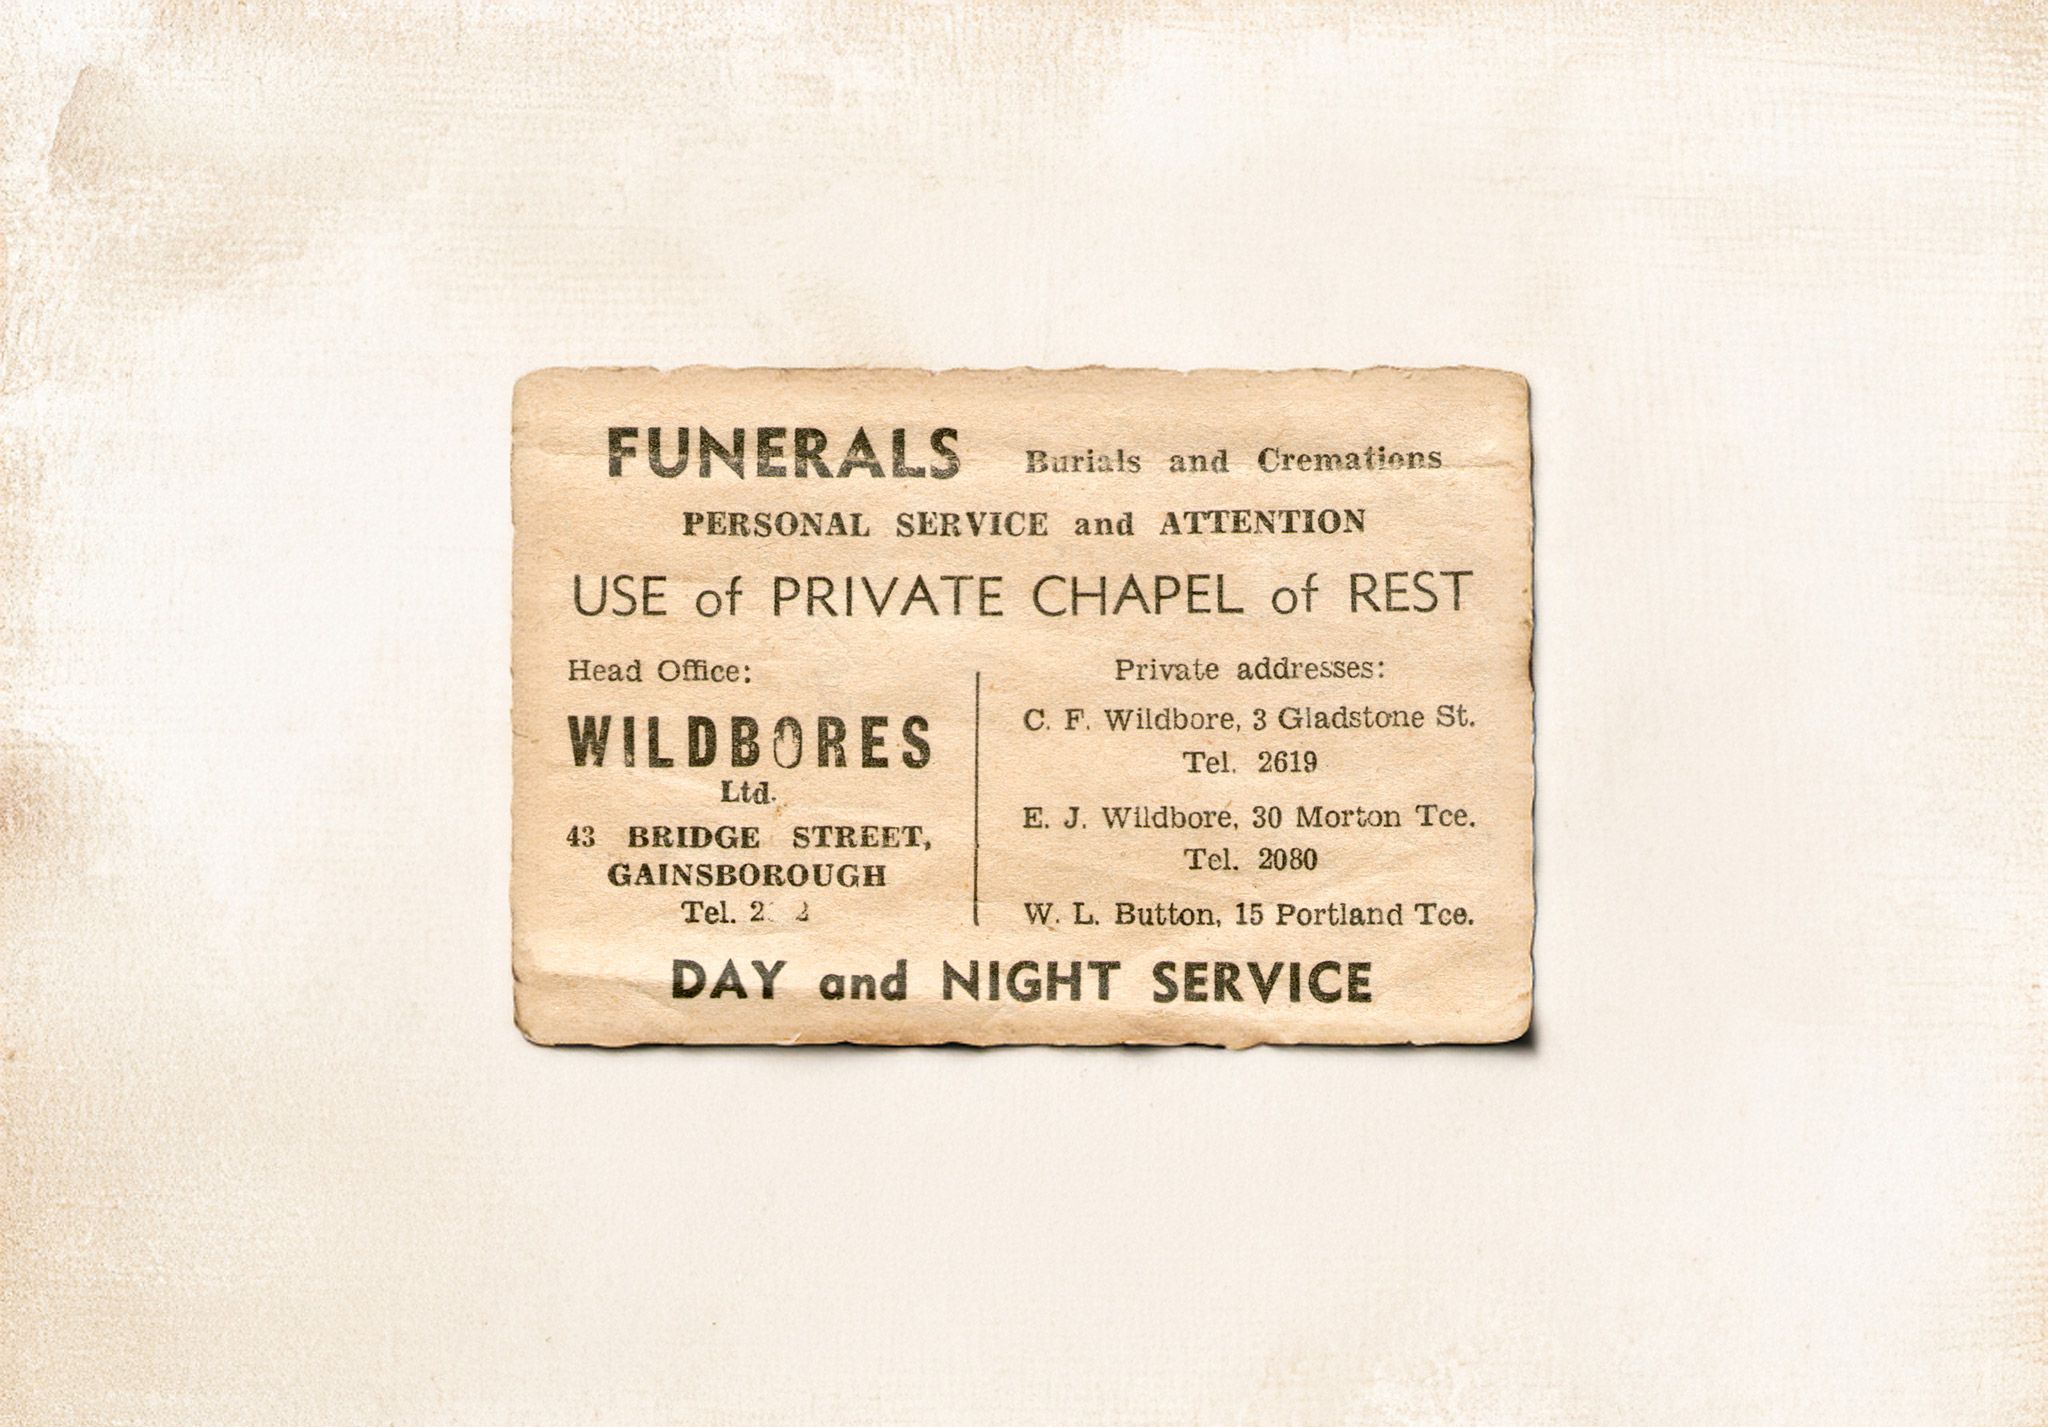 FUNERALS Burials and Cremations
PERSONAL SERVICE and ATTENTION
USE of PRIVATE CHAPEL of REST
Head Office:
WILDBORES
Ltd.
43 BRIDGE STREET,
GAINSBOROUGH
Tel.
Private addresses:
C. F. Wildbore, 3 Gladstone St.
Tel. 2619
E. J. Wildbore, 30 Morton Tce.
Tel. 2080
W. L. Button, 15 Portland Tce.
DAY and NIGHT SERVICE